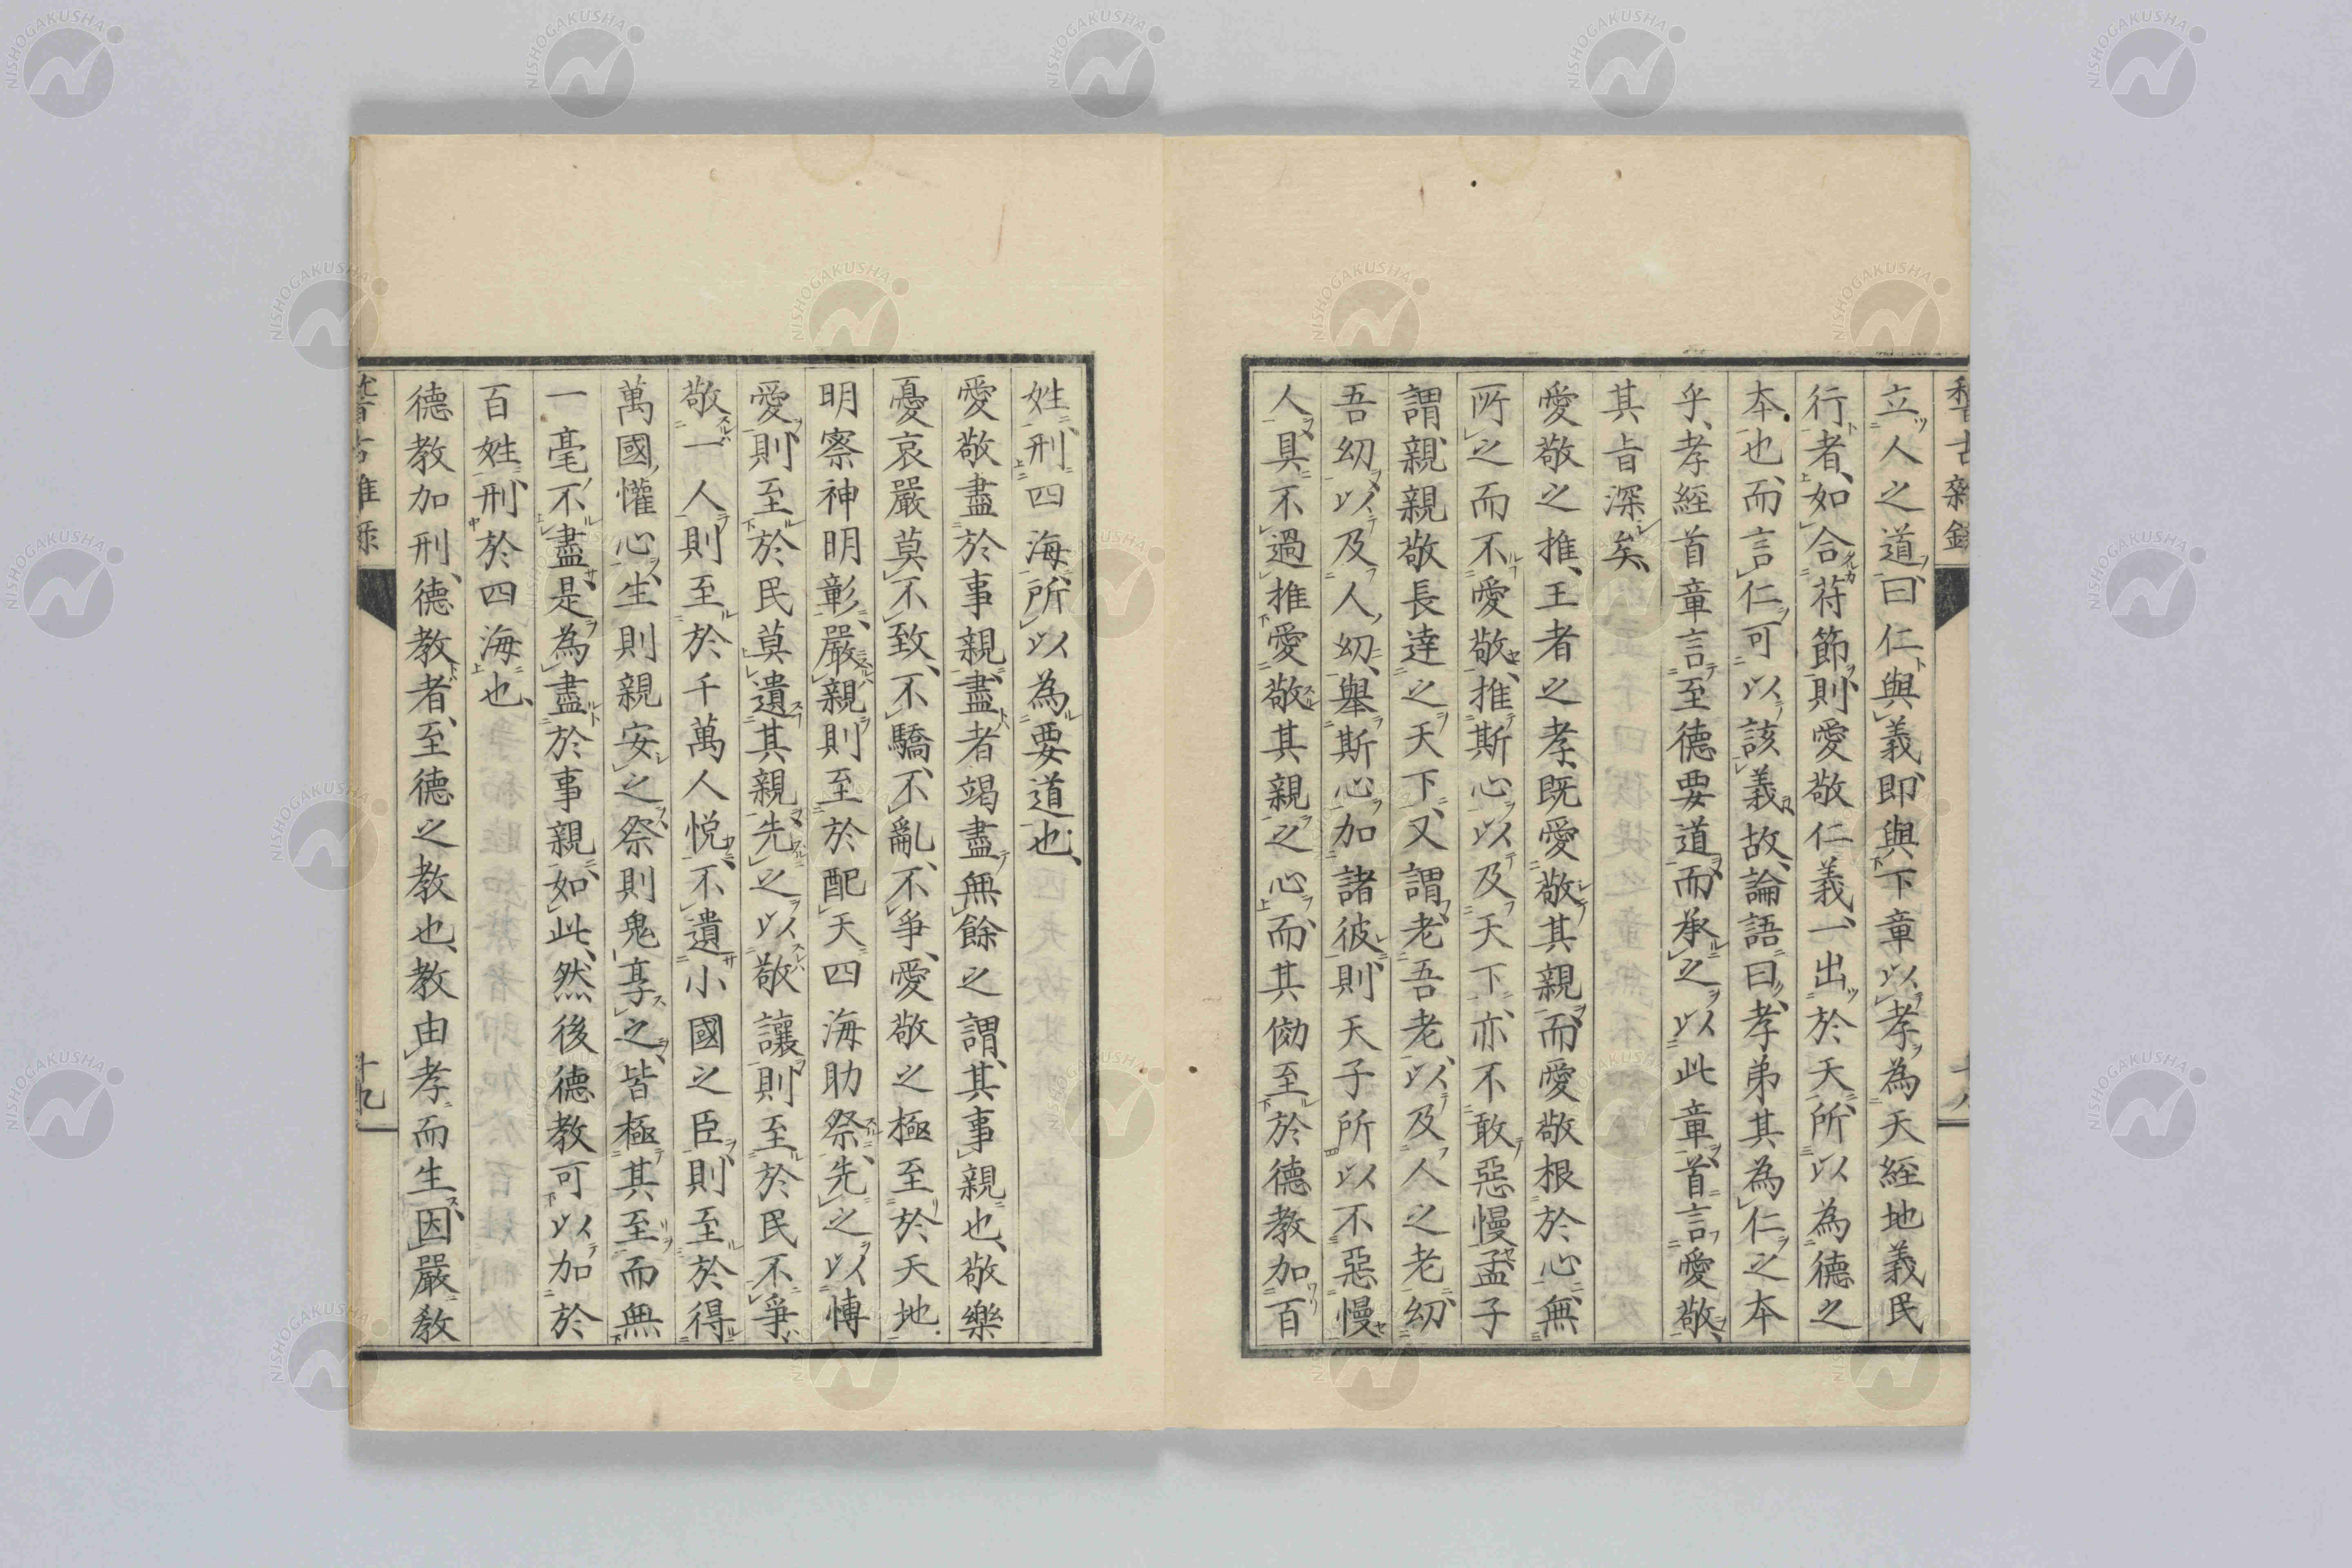 稽古雜錄
十八
立人之道曰仁與義即與下章以孝為天經地義民
行者如合符節則愛敬仁義一出於天所以為德之
本也而言仁可以該義故論語曰孝弟其為仁之本
乎孝經首章言至德要道而承之以此章首言愛敬
其旨深矣
愛敬之推王者之孝既愛敬其親而愛敬根於心無
所之而不愛敬推斯心以及天下亦不敢惡慢孟子
謂親親敬長達之天下又謂老吾老以及人之老幼
吾幼以及人幼舉斯心加諸彼則天子所以不惡慢
人具不過推愛敬其親之心而其効至於德教加百
姓刑四海所以為要道也
愛敬盡於事親盡者竭盡無餘之謂其事親也敬樂
憂哀嚴莫不致不驕不亂不爭愛敬之極至於天地
明察神明彰嚴親則至於配天四海助祭先之以博
愛則至於民莫遺其親先之以敬讓則至於民不爭
敬一人則至於千萬人悦不遺小國之臣則至於得
萬國懽心生則親安之祭則鬼享之皆極其至而無
一毫不盡是為盡於事親如此然後德教可以加於
百姓刑於四海也
德教加刑德教者至德之教也教由孝而生因嚴教
稽古雜錄
十九
NISHOGAKUSHA